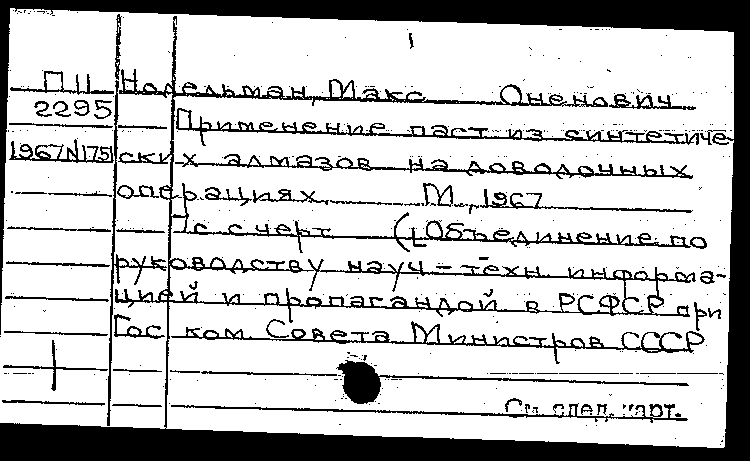 1
П11 Нодельман, Макс Оненович
2295 Применение паст из синтетиче-
1967N175 ских алмазов на доводочных
операциях. М., 1967
7с с черт (Объединение по
руководству науч-техн. информа-
цией и пропагандой в РСФСР при
Гос ком. Совета Министров СССР
См. след. карт.